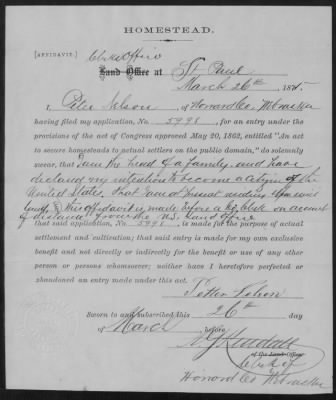 HOMESTEAD.
[AFFIDAVIT.]
Clks Office
Land Office at St Paul
March 26th 1875.
I, Peter Nelson of Howard Co. Nebraska
having filed my application, No. 5998 for an entry under the
provisions of the act of Congress approved May 20, 1862, entitled "An act
to secure homesteads to actual settlers on the public domain," do solemnly
swear, that I am the head of a family and have
declared my intention to become a citizen of the
United States, that I am at present residing upon said
land, & this affidavit is made before a Co. Clerk on account
of distance from the U.S. Land Office
that said application, No. 5998, is made for the purpose of actual
settlement and cultivation; that said entry is made for my own exclusive
benefit and not directly or indirectly for the benefit or use of any other
person or persons whomsoever; neither have I heretofore perfected or
abandoned an entry made under this act.
Nelson
Sworn and subscribed this 26th day
of March before
of the Land Office.
Clerk of
Howard Co Nebraska